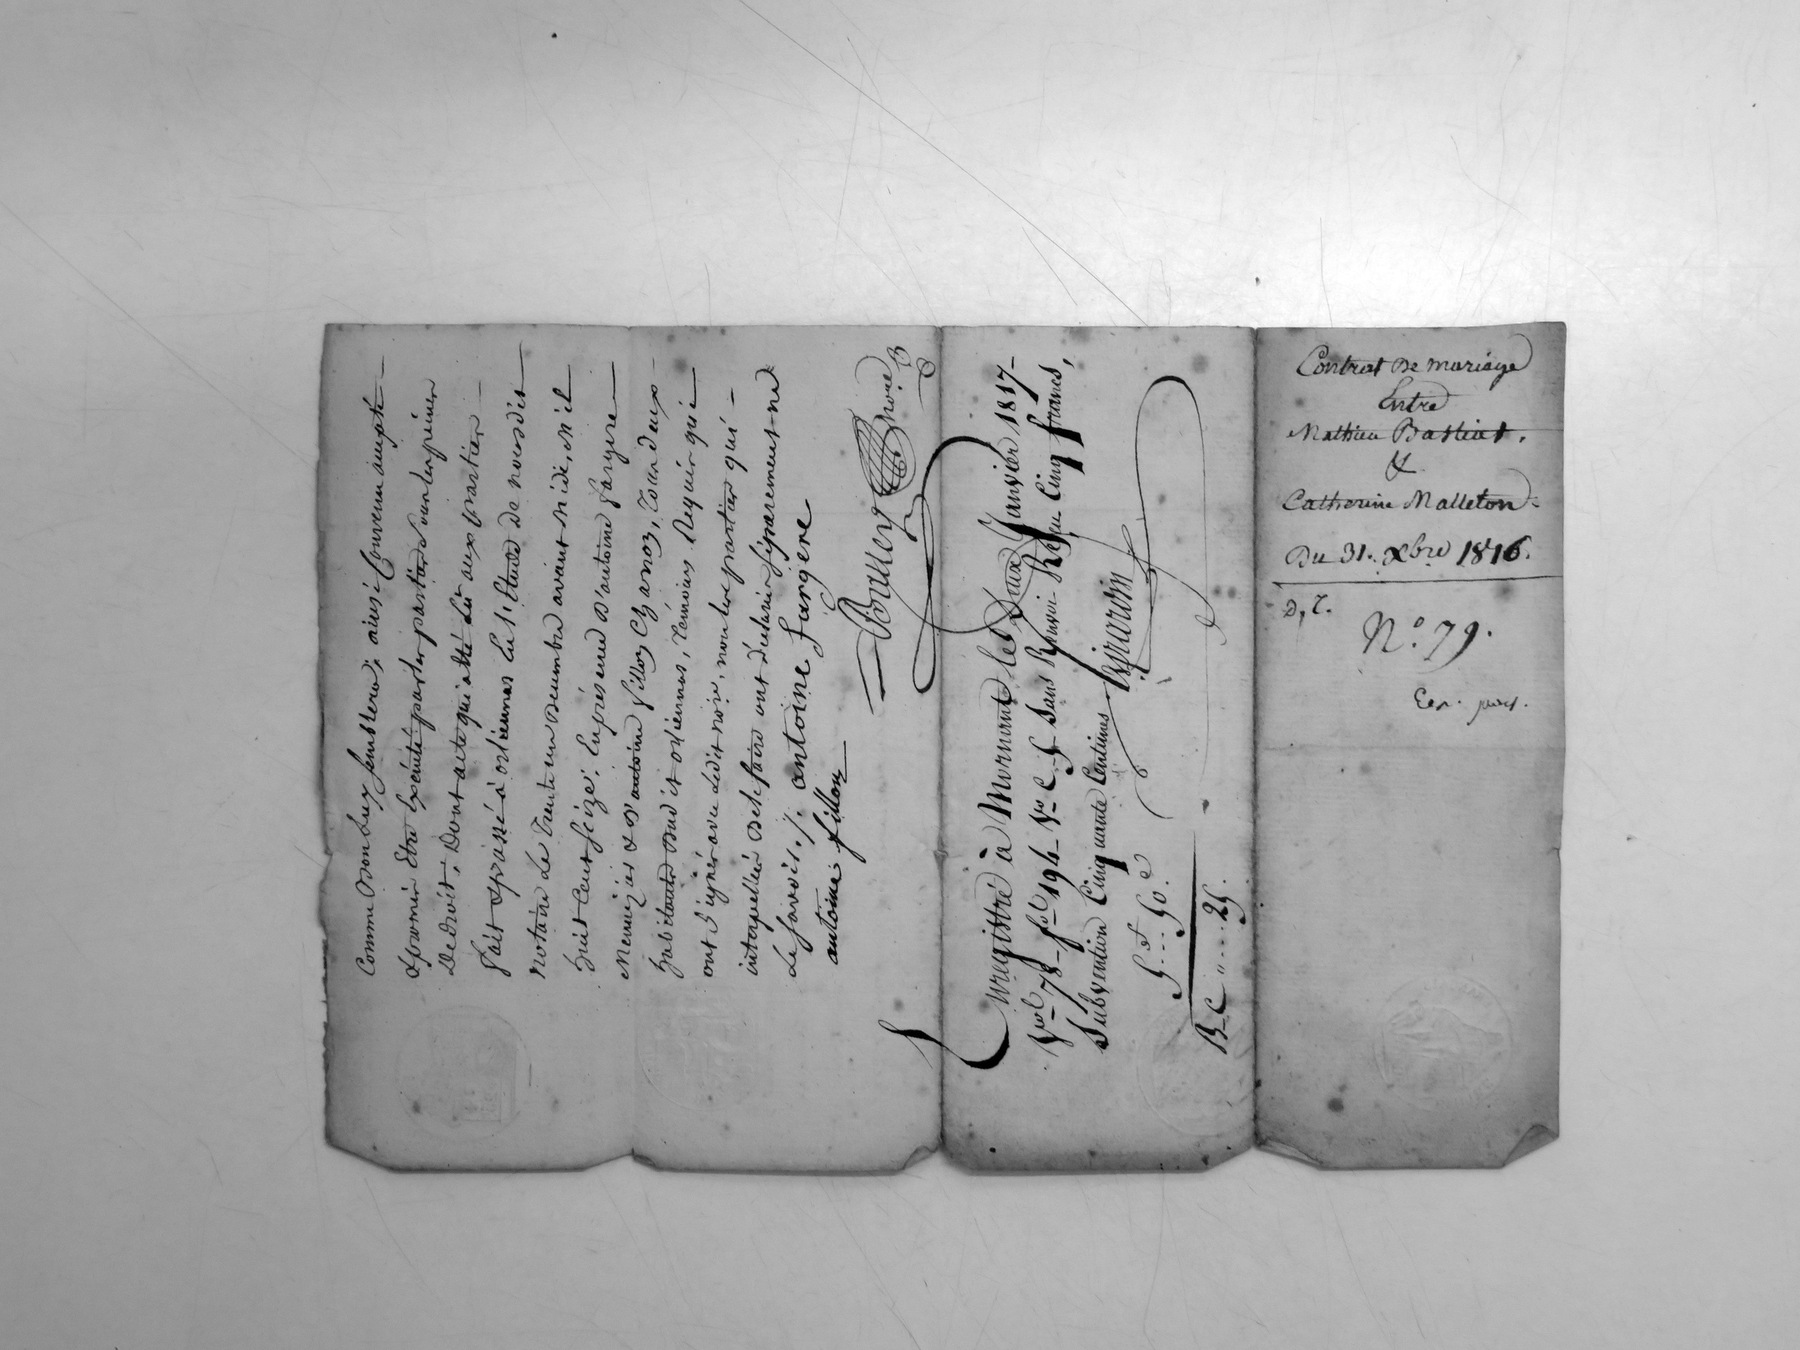 Comme Bon Luy Semblera; ainsi Convenu accepté
& promis Etre Exécuté par les parties sous les peines
De droit, Dont acte qui a été Lu aux parties
fait & passé à orliennas En l'Etude De nous dit
notaire Le Trente un Decembre avant midi, mil
huit Cent Seize; En présence D'antoine fargere
Menuizier & D'antoine fillon Charron, Tous deux
habitants Dud it orliennas, Témoins Requis qui
ont Signé avec Ledit not.re, non les parties qui
interpellées De le faire ont Déclaré Séparement ne
Le Savoir. /. antoine fargere
antoine fillon
not.re
Enregistré à Mornant le Deux Janvier 1817
Vol 78 fol 194 V.o C. 5 Sans Renvoi Reçu Cinq francs,
Subvention Cinquante Centimes
5 .. 50.c
B C " .... 25.
Contrat De mariage
Entre
Mathieu Bastiat.
&
Catherine Malleton.
Du 31. xbre 1816.
D, T.
N.o 79.